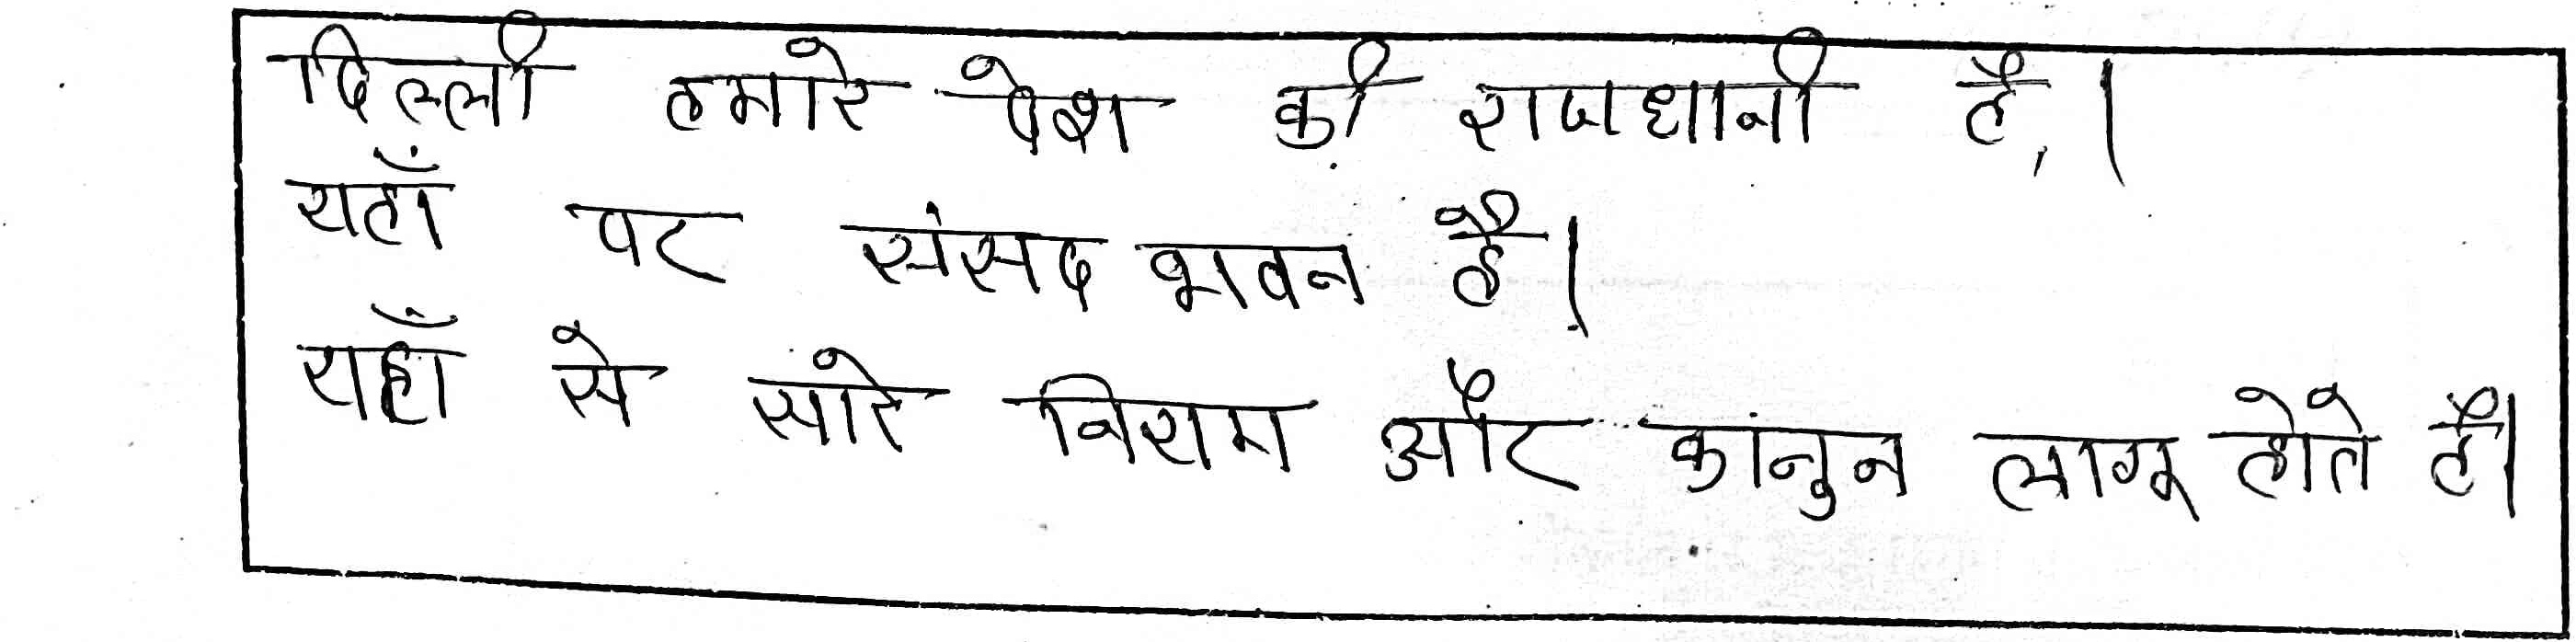 दिल्ली हमारे देश की राजधानी है,।
यहाँ पर संसद भवन है।
यहाँ से सारे नियम और कानुन लागू होते है।